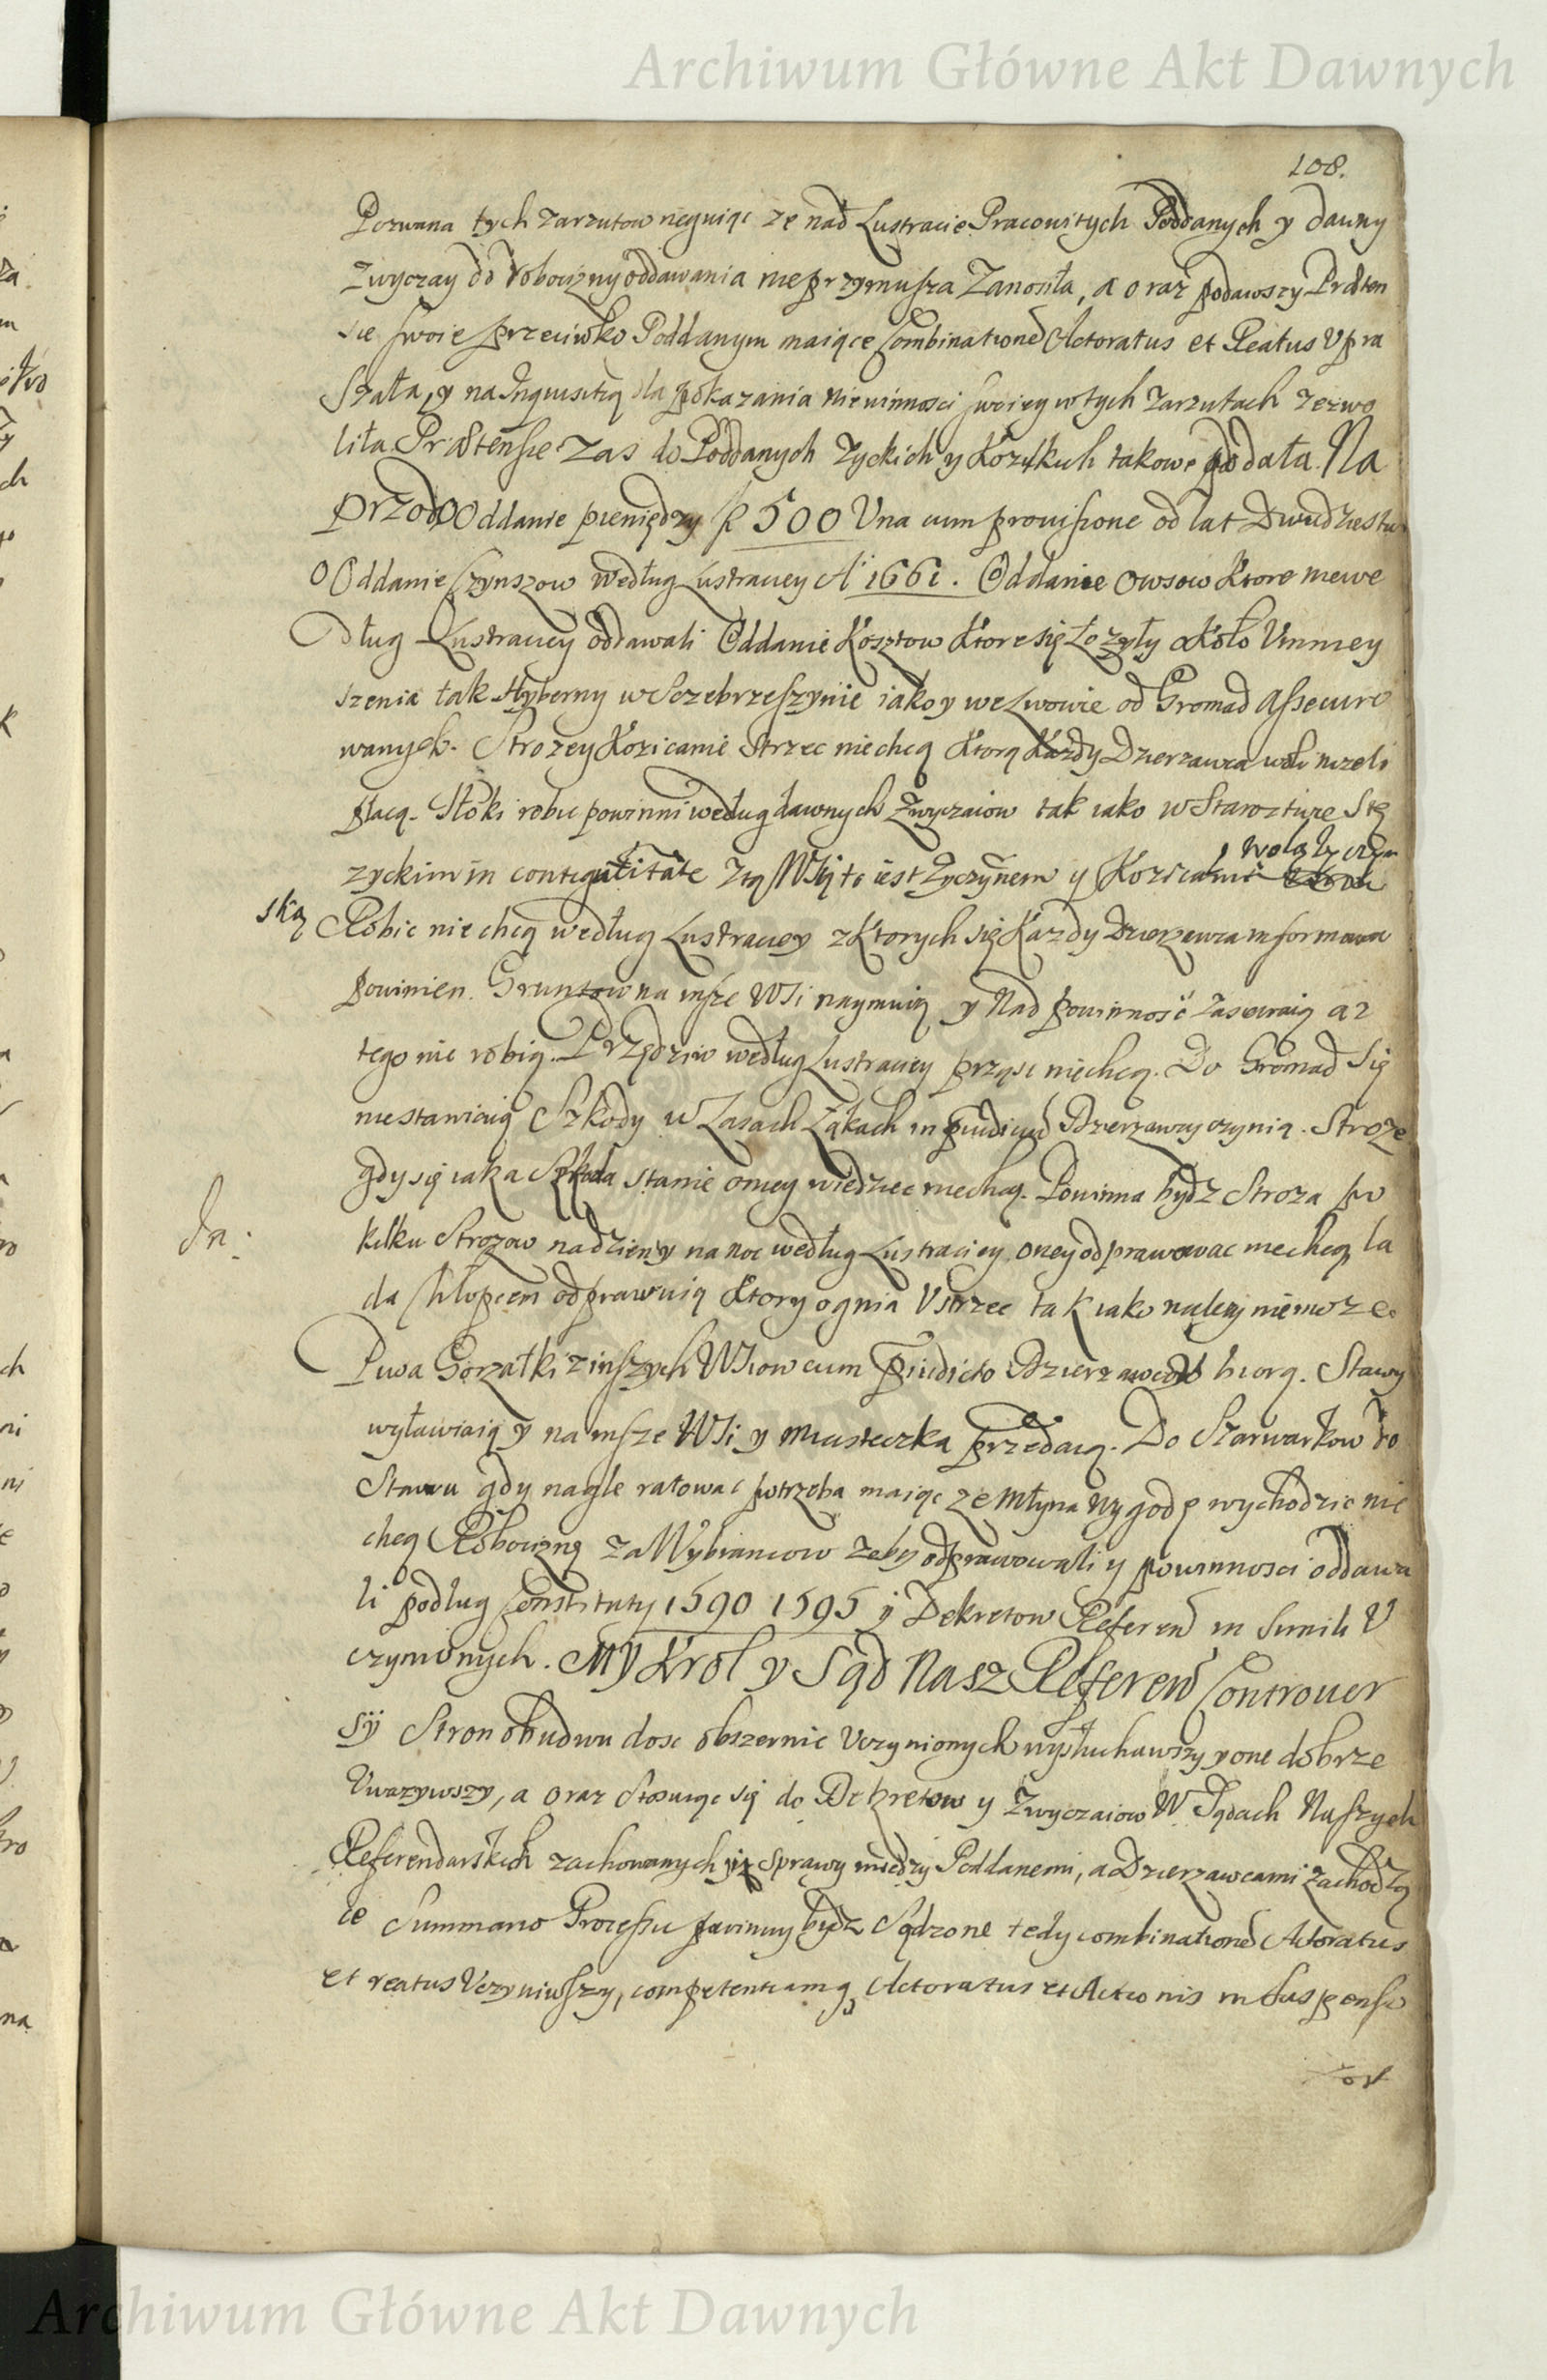 Archiwum Główne Akt Dawnych
108.
Pozwana tych zarzutow neguiąc ze nad Lustracie Pracowitych Poddanych y dawny
zwyczay do robocizny oddawania nie przymusza Zanosiła, a oraz podawszy Præten
sie swoie przeciwko Poddanym maiące Combinationem Actoratus et Reatus Upra
szała, y na Inquisitią dla pokazania niewinnosci swoiey w tych zarzutach zezwo
liła. Prætensie zas do Poddanych Zyckich y Kozickich takowe podała. Na
przod Oddanie pieniędzy 500 Una cum provisione od lat Dwudziestu
O Oddanie Czynszow według Lustraciey Ao 1661. Oddanie Owsow Ktore niewe
dług Lustraciey oddawali Oddanie Kosztow Ktore się Łozyły około Umniey
szenia tak Hyberny w Sczebrzeszynie iako y we Lwowie od Gromad assecuro
wanych. Strozey Kozicanie Strzec niechcą Ktorą Kazdy Dzierzawca woli nizeli
płacą. Tłoki robic powinni według dawnych zwyczaiow tak iako w Starostwie Stę
zyckim in contiguitate z tą Wsią to iest Zyczynem y Kozicami
Wolą Zyczyn
ską Robic nie chcą według Lustraciey z Ktorych się Kazdy Dzierzawca informowac
powinien. Gruntow na insze Wsi naymuią y Nad powinnosc zasiewaią a z
tego nie robią. Przędziw według Lustraciey prząsc niechcą. Do Gromad Się
niestawiaią Szkody w Lasach Łąkach in præiudicium Dzierzawcy czynią. Stroze
gdy się iaka Szkoda stanie o niey wiedziec niechcą. Powinna bydz Stroza po
kilku Strozow na dzien y na noc według Lustraciey, oney odprawowac niechcą la
da Chłopcem odprawuią Ktory ognia Ustrzec tak iako nalezy niemoze.
Piwa Gorzałki z inszych Wsiow cum præiudicio Dzierzawcow biorą. Stawy
wyławiaią y na insze Wsi y miasteczka przedaią. Do Szarwarkow do
Stawu gdy nagle ratowac potrzeba maiąc ze Młyna Wygodę wychodzic nie
chcą Robociznę za Wybrancow zeby odprawowali y powinnosci oddawa
li podług Constituty 1590 1595 y Dekretow Referen in Simili U
czynionych. My Krol y Sąd Nasz Referen Controver
sÿ Stron obudwu dosc obszernie Uczynionych wysłuchawszy y one dobrze
Uwazywszy, a oraz Stosuiąc się do Dekretow y Zwyczaiow W Sądach Naszych
Referendarskich zachowanych iz sprawy między Poddanemi, a Dzierzawcami zachodzą
ce Summario Processu powinny bydz Sądzone tedy combinationem Actoratus
et reatus Uczyniwszy, competentiamq Actoratus et Actionis in Suspenso
Archiwum Główne Akt Dawnych